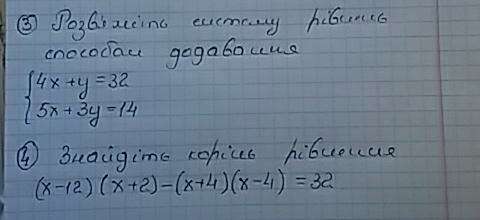 ③ Розв'яжіть систему рівнянь
способом додавання
{4x+y=32
{5x+3y=14
④ Знайдіть корінь рівняння
(x-12)(x+2)-(x+4)(x-4)=32